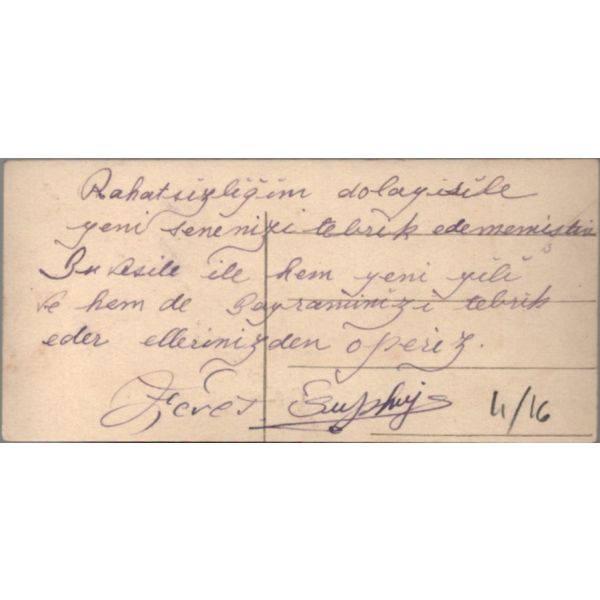 Rahatsızlığım dolayisile
yeni senenizi tebrik edememiştim
Bu vesile ile hem yeni yılı
ve hem de Bayramınızı tebrik
eder ellerinizden öperiz.
Suphiye 4/16